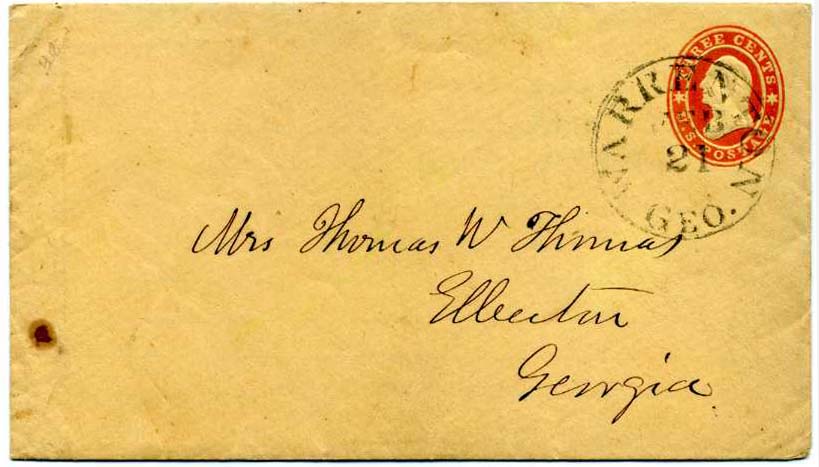 THREE CENTS
U.S. POSTAGE
WARRENTON
FEB
21
GEO.
Mrs Thomas W Thomas
Elberton
Georgia